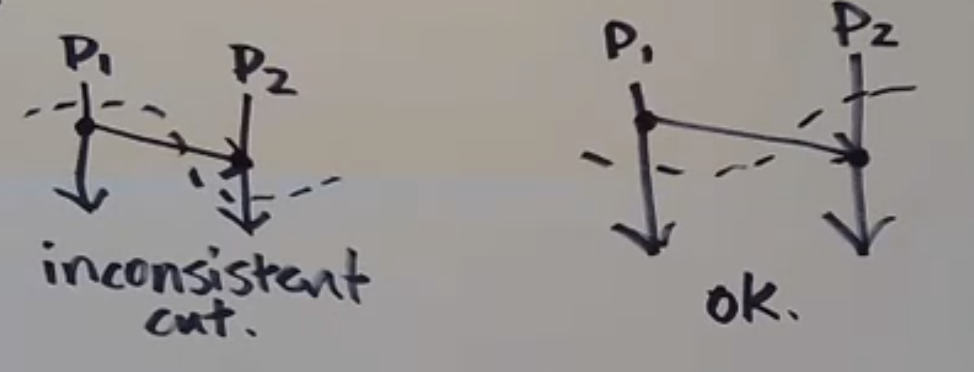 P1 P2
inconsistent
cut.
P1 P2
ok.